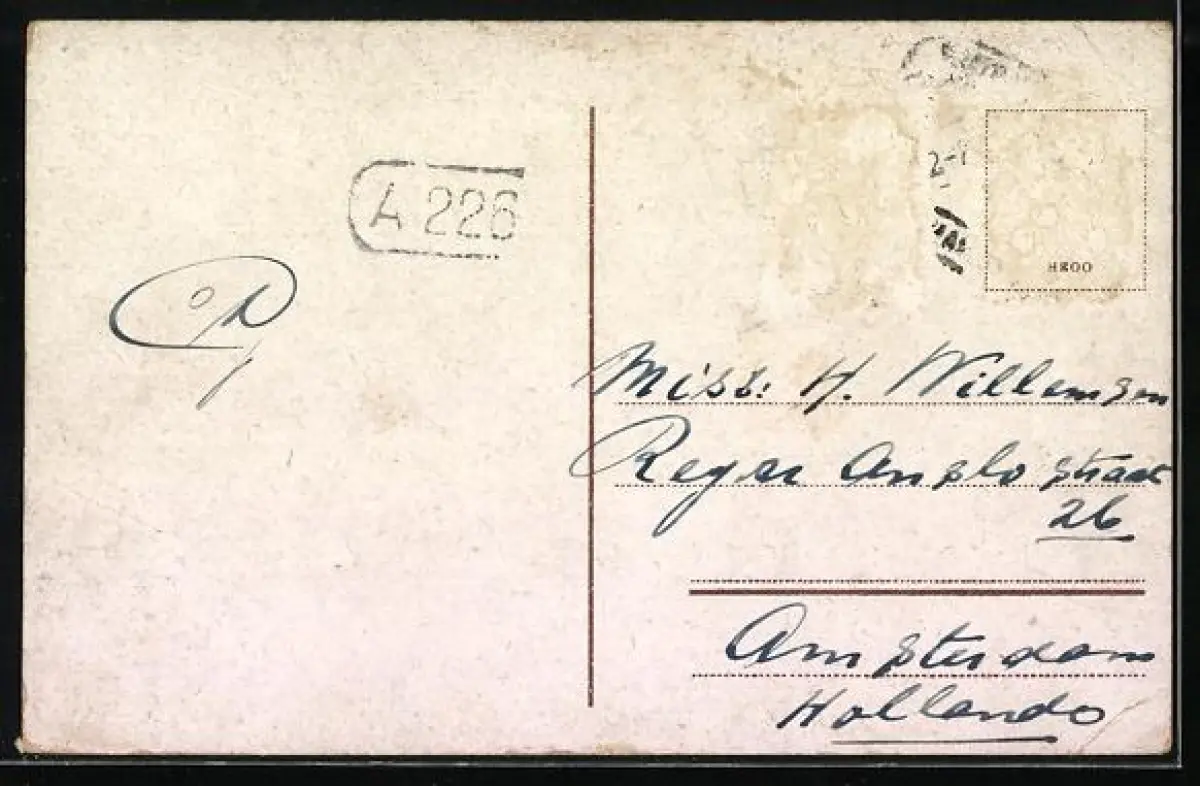 A 226
2-
HEOO
Miss: H. Willemsen
Reyer Anslo straat
26
Amsterdam
Hollando